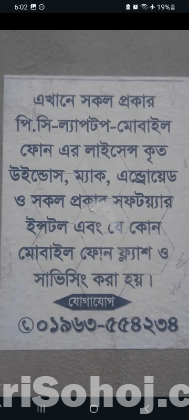 6:02
19%
এখানে সকল প্রকার
পি.সি-ল্যাপটপ-মোবাইল
ফোন এর লাইসেন্স কৃত
উইন্ডোস, ম্যাক, এন্ড্রোয়েড
ও সকল প্রকার সফটয়্যার
ইন্সটল এবং যে কোন
মোবাইল ফোন ফ্ল্যাশ ও
সার্ভিসিং করা হয়।
যোগাযোগ
০১৯৬৩-৫৫৪২৩৪
kriSohoj.c